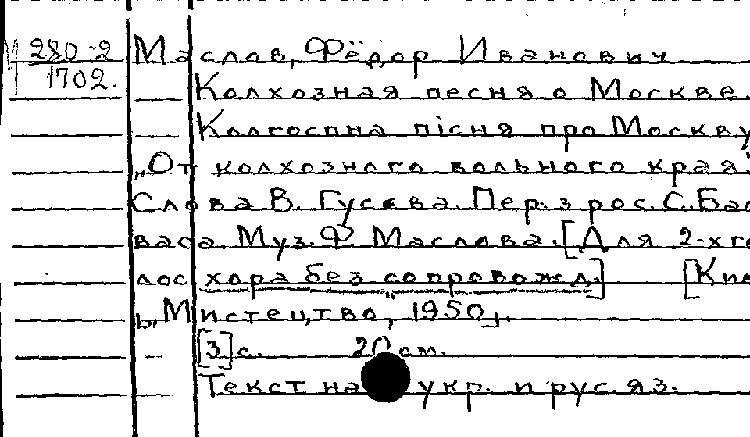 280-2 Маслов, Фёдор Иванович
1702. Колхозная песня о Москве.
Колгоспна пісня про Москву
„От колхозного вольного края"
Слова В. Гусева. Пер. з рос. С. Бас
васа. Муз. Ф. Маслова. [Для 2-хго
лос хора без сопровожд.] [Ки
„Мистецтво", 1950].
[3] с. 20 см.
Текст на укр. и рус. яз.